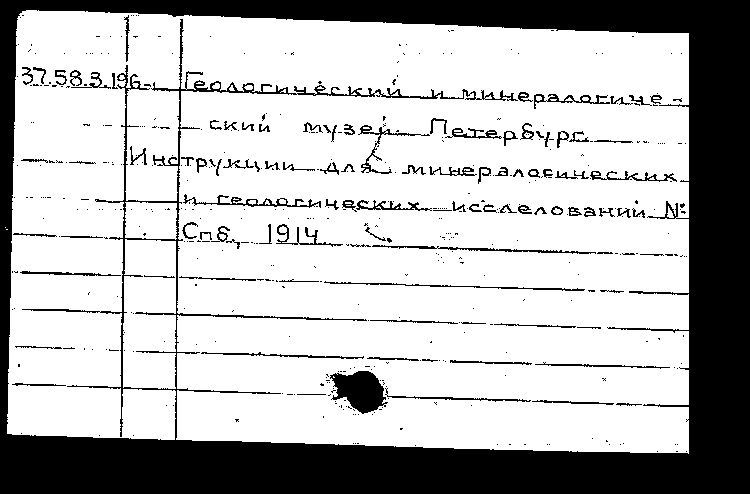 37.58.3.196-1 Геологический и минералогиче-
ский музей. Петербург.
Инструкции для минералогических
и геологических исследований №:
Спб., 1914